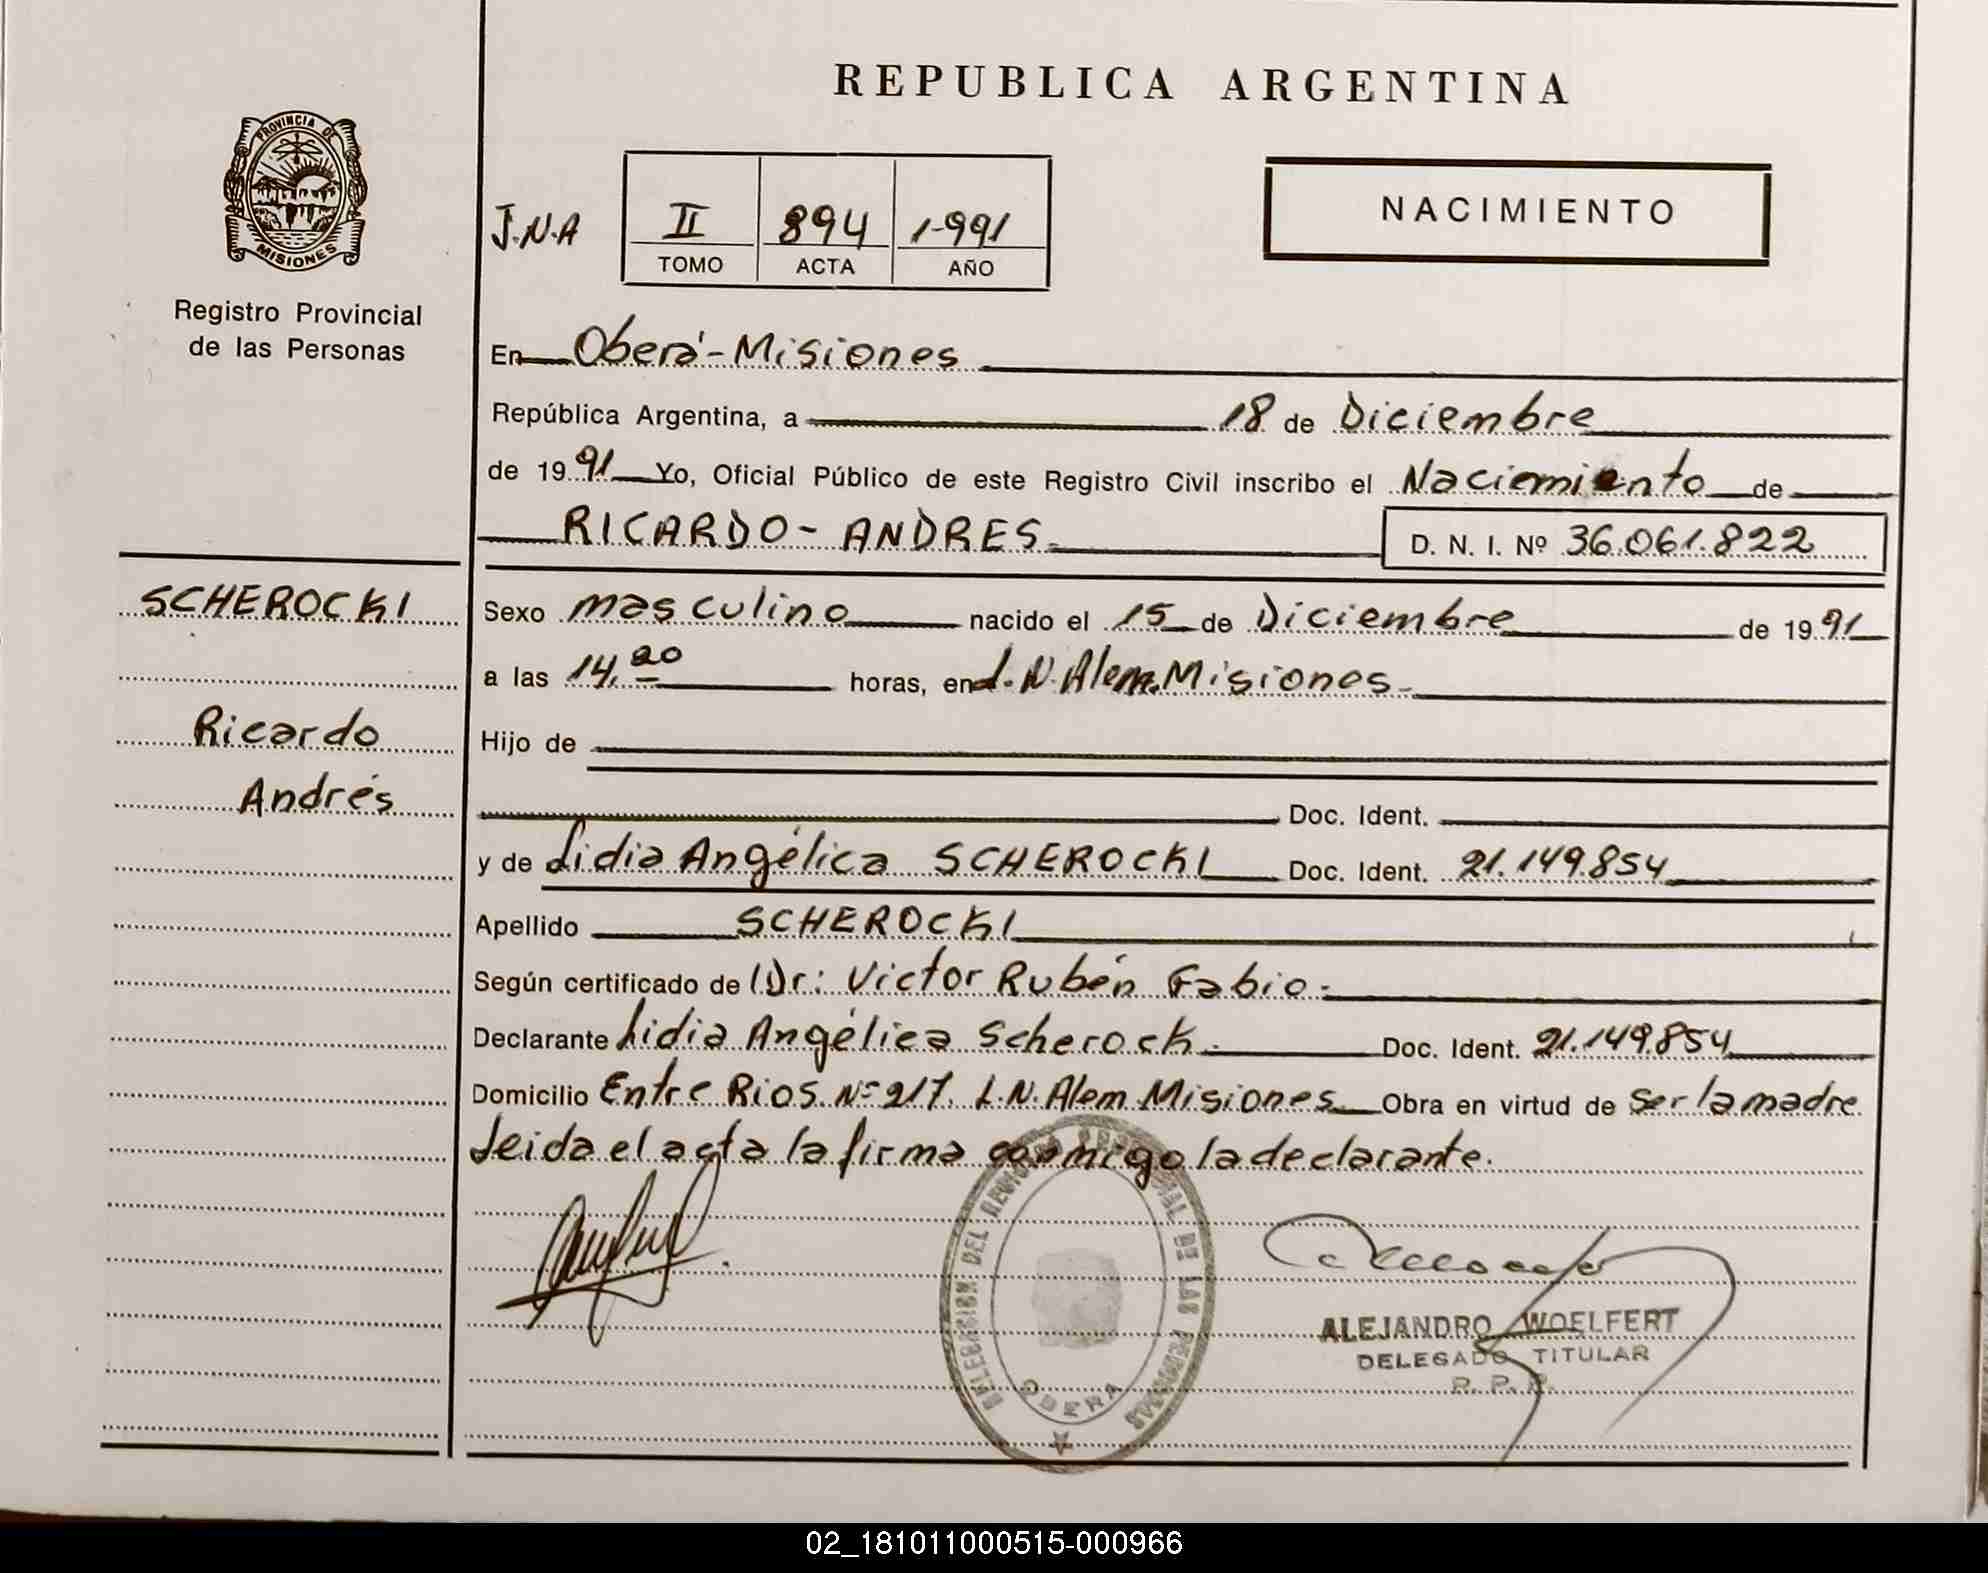 REPUBLICA ARGENTINA
PROVINCIA DE
MISIONES
Registro Provincial
de las Personas
J.N.A
II 894 1-991
TOMO ACTA AÑO
NACIMIENTO
En Oberá-Misiones
República Argentina, a 18 de Diciembre
de 1991 Yo, Oficial Público de este Registro Civil inscribo el Naciemiento de
RICARDO-ANDRES. D. N. I. Nº 36.061.822
SCHEROCKI
Ricardo
Andrés
Sexo masculino nacido el 15 de Diciembre de 1991
a las 14,20 horas, en L.N.Alem.Misiones.
Hijo de
Doc. Ident.
y de Lidia Angélica SCHEROCKI Doc. Ident. 21.149.854
Apellido SCHEROCKI
Según certificado de Dr: Victor Rubén Fabio.
Declarante Lidia Angélica Scherock. Doc. Ident. 21.149.854
Domicilio Entre Rios. Nº 217. L.N.Alem.Misiones Obra en virtud de ser la madre
Leida el acta la firma conmigo la declarante.
DELEGACION DEL REGISTRO PROVINCIAL DE LAS PERSONAS
OBERA
ALEJANDRO WOELFERT
DELEGADO TITULAR
R. P. P.
02_181011000515-000966